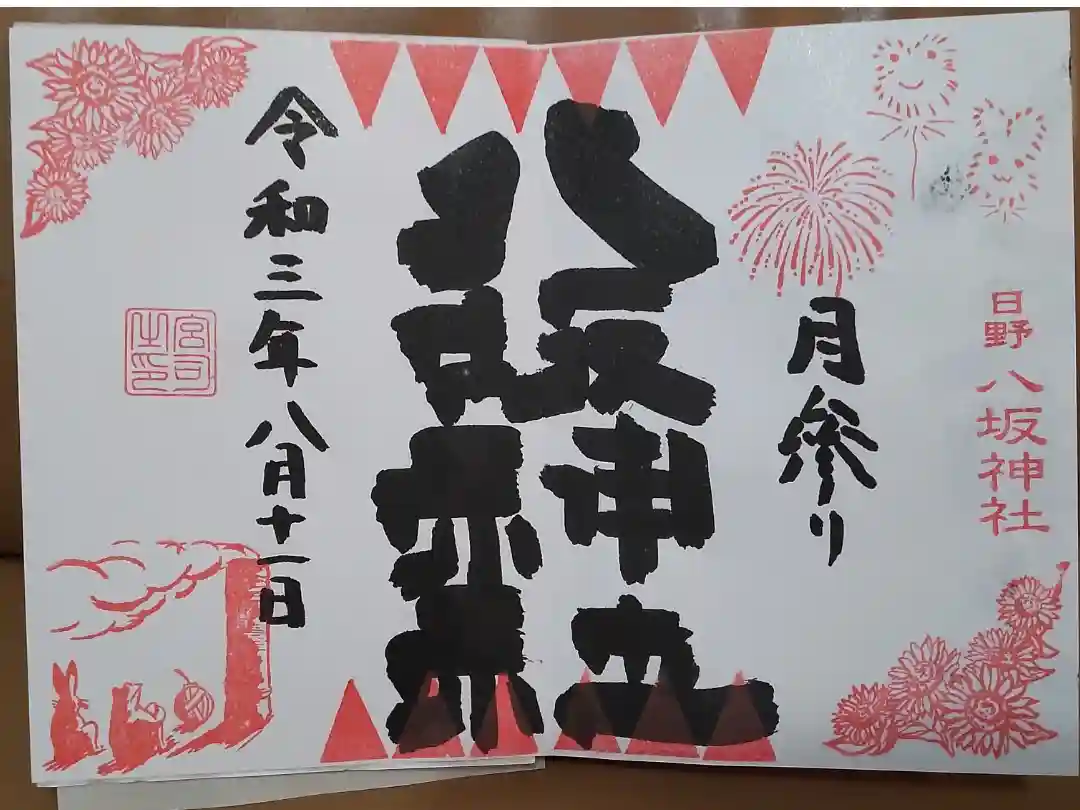 日野
八坂神社
月参り
八坂神社
令和三年八月十一日
宮司
之印